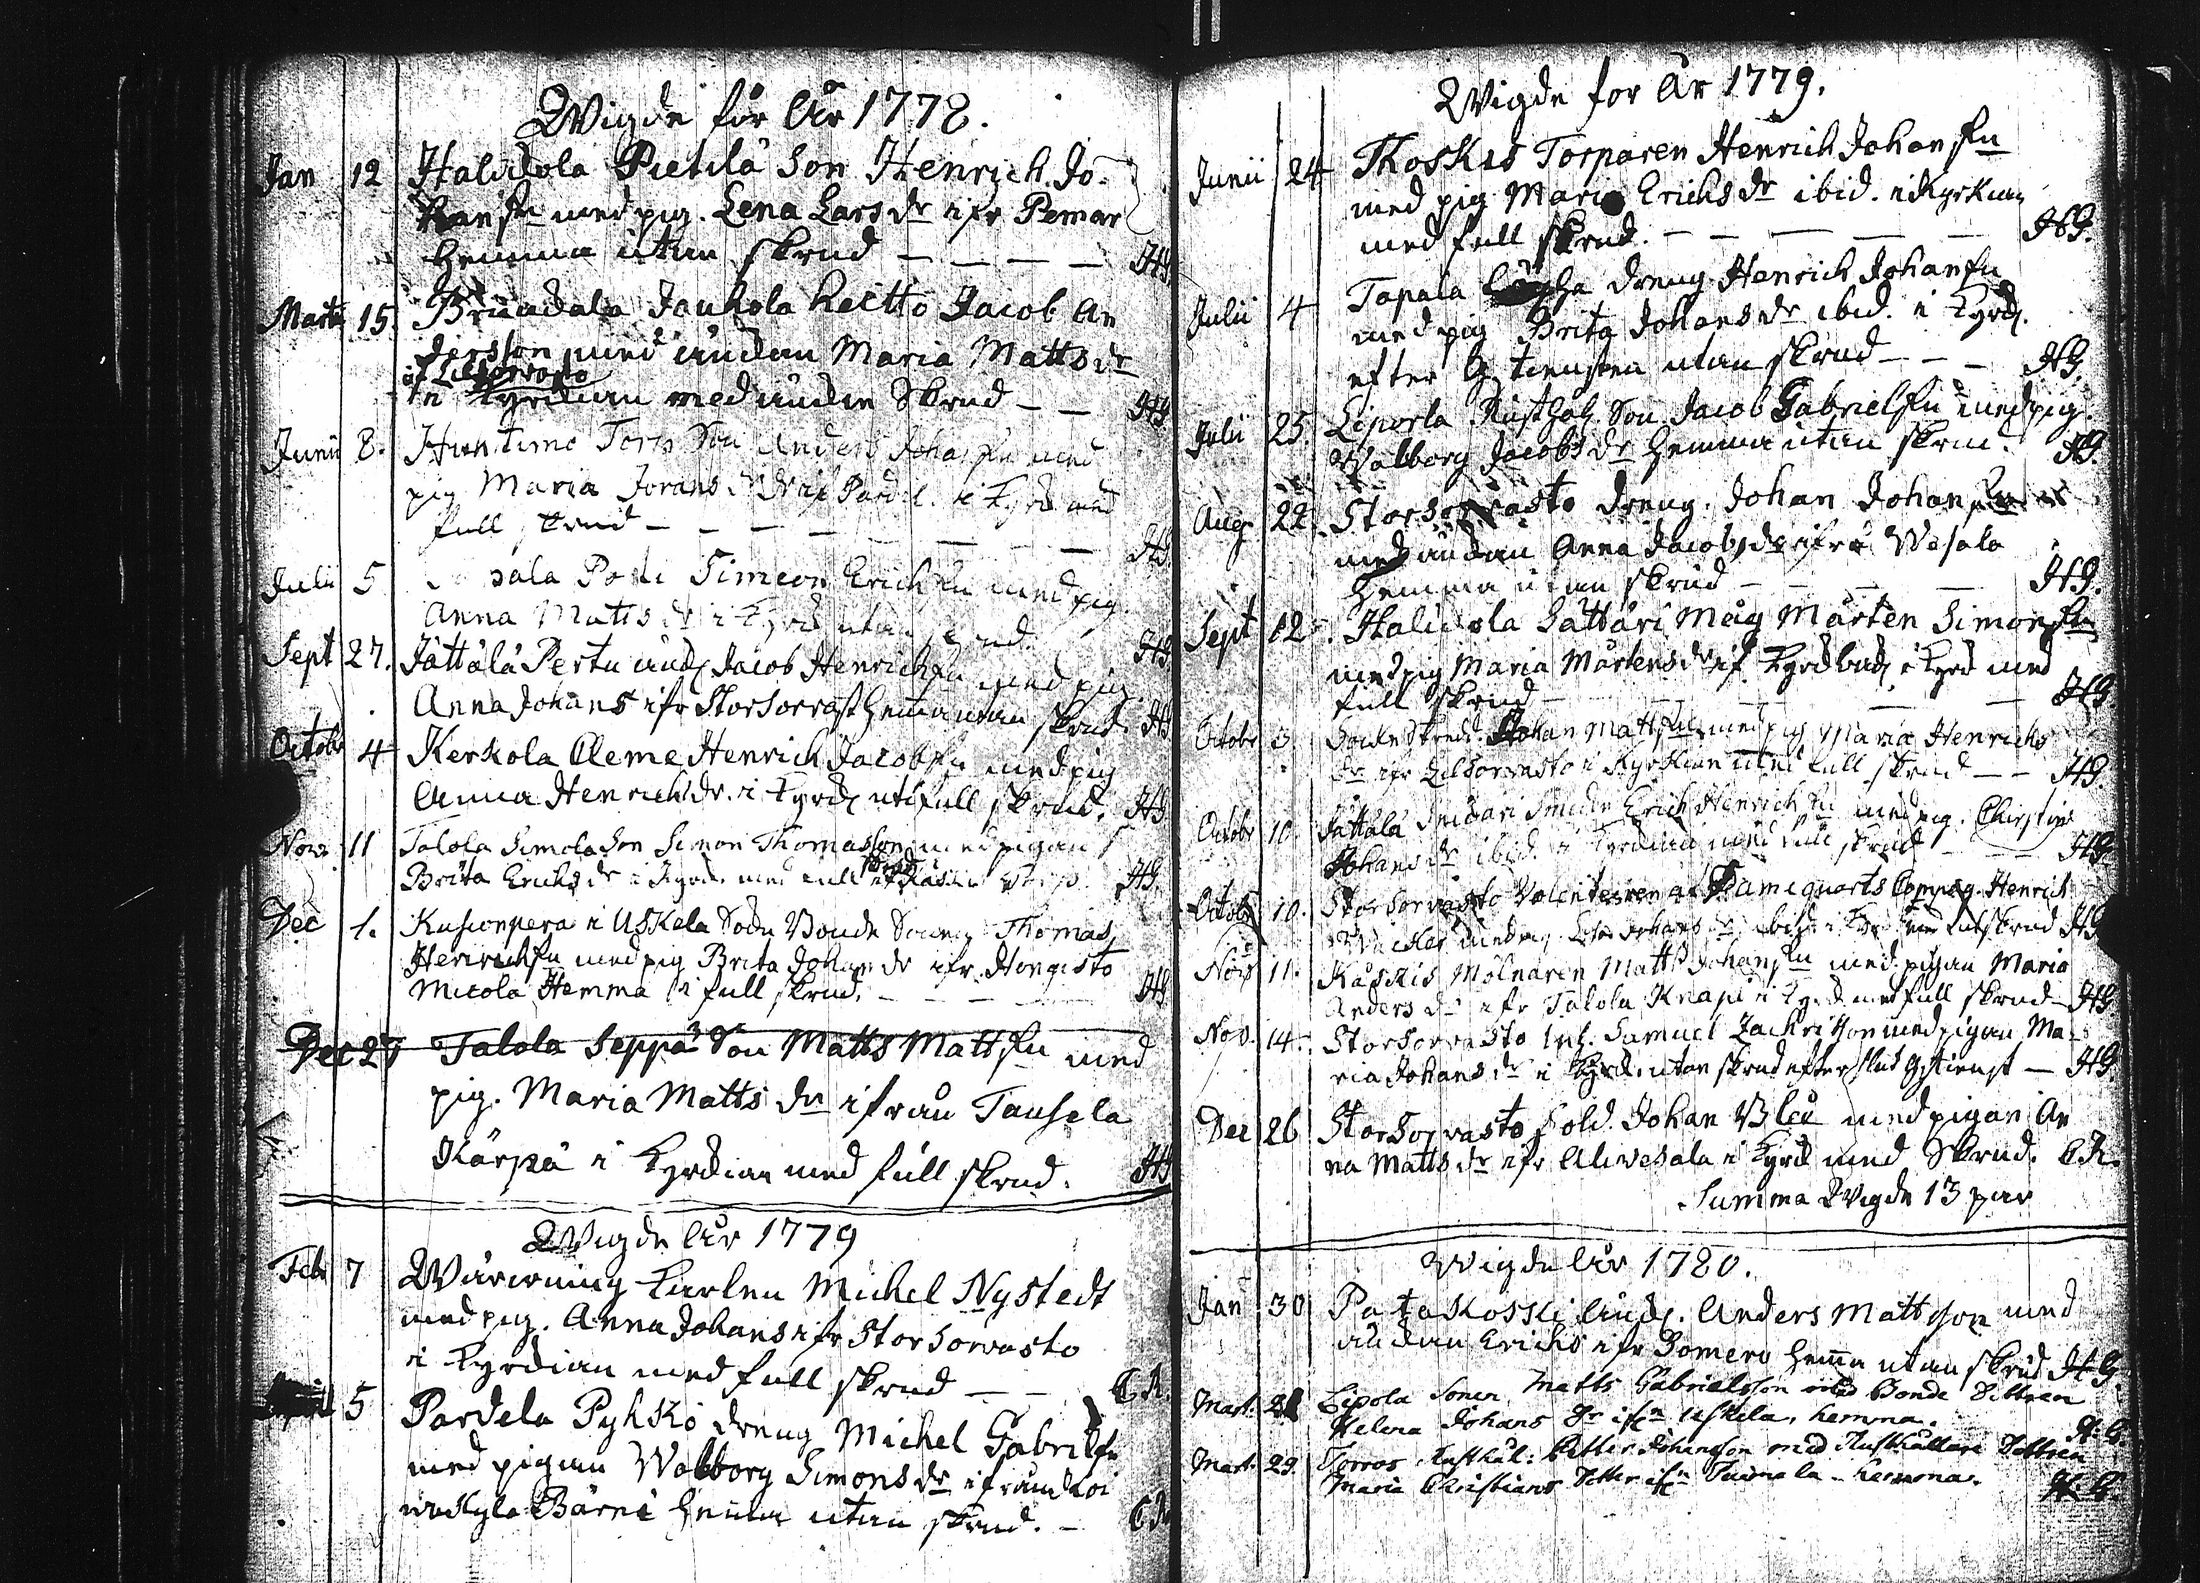 Wigde för År 1778.
Jan 12 Halikola Pietilä Son Henrich Jo-
hansn med pig. Lena Larsdr ifr Pemar
hemma utan skrud — — — — HG
Martii 15. Jauhola Jacob An
dersson med änkan Maria Mattsdr
af Lillsorvasto
i Kyrckian med änkie Skrud — — HG
Junii 8. Torp Son Anders Johansn med
pig Maria Jorans dr i Kyrck med
full skrud — — — — — — HG
Julii 5 Simeon Erichsn med pig.
Anna Mattsdr i Kyrck utan skrud. HG
Sept 27. Jättälä Pertu änkl Jacob Henrichsn med pig.
Anna Johans ifr Storsorvast hemma utan skrud. HG
Octobr 4 Kerkola Cleme Henrich Jacobsn med pig
Anna Henrichsdr. i Kyrck uti full skrud. HG
Nov. 11 Talola Simola Son Simon Thomasson med pigan
Brita Erichsdr i Kyrck. med full HG.
Dec 1. i Uskela Sokn Bonde Sonen Thomas
Henrichsn med pig Brita Johansdr ifr. Hongisto
Micola Hemma i full skrud. — — — — HG
Dec 27 Talola Seppä Son Matts Mattsn med
pig. Maria Matts dr ifrån Tausela
Kärpä i Kyrckian med full skrud. HG
Wigde År 1779
Febr 7 Wärfwning Karlen Michel Nystedt
med pig. Anna Johans ifr Storsorvasto
i Kyrckian med full skrud — — C.R.
5 Pardela Pyhskö dreng Michel Gabrielsn
med pigan Walborg Simonsdr ifrån Koi
wukyla Bärni hemma utan skrud. — CR
Wigde för År 1779.
Junii 24 Torparen Henrich Johansn
med pig Maria Erichsdr ibid. i Kyrkian
med full skrud. — — — — — HG.
Julii 4 Tapala dreng Henrich Johansn
med pig Brita Johansdr ibid. i Kyrck.
efter G. tiensten utan skrud — — — HG.
Julii 25. Liporla Rusth. Son Jacob Gabrielsn med pig.
Walborg Jacobsdr hemma utan skrud. HG.
Aug 22. Storsorvasto dreng. Johan Johansn
med änckan Anna Jacobsdr ifrå Wesala
hemma utan skrud — — — HG.
Sept 12. Halikola Sattäri Måg Mårten Simonsn
med pig Maria Mårtensdr af Kyrckback i Kyrck med
full skrud — — — — — HG
Octobr 3. Sockn Skredd. Johan Mattsn med pig Maria Henrichs
dr ifr Lillsorvasto i Kyrkian med full skrud — — HG.
Octobr 10. Jättälä Erich Henrichsn med pig. Christina
Johansdr ibid. i Kyrckian med full skrud — — HG.
Octobr 10. Storsorvasto Volenteiren af Compag. Henrich
med pig Johans dr ibid. i Kyrck med full skrud HG
Nov 11. Käskis Mölnaren Matts Johansn med pigan Maria
Andersdr ifr Talola Knapi i Kyrck med full skrud — HG
Nov. 14. Storsorvasto Inh. Samuel Zachrisson med pigan Ma-
ria Johansdr i Kyrck. utan skrud efter slut Gtienst — HG
Dec 26 Storsorvasto Sold. Johan Bleu med pigan An
na Mattsdr ifr Alivesala i Kyrck med Skrud. C.R.
Summa Wigde 13 par
Wigde År 1780.
Jan 30 Patakoski änkl. Anders Mattsson med
änckan Erichs ifr Somero hema utan skrud HG.
Mart. Lipola Sonen Matts Gabrielsson med Bonde Dottren
Helena Johans Dr ifrn Uskela, hemma. H.G.
Mart. 29. Torros Rusthål: Petter Johansson med Rusthållare Dottren
Maria Christians Dotter ifrn hemma. H.G.